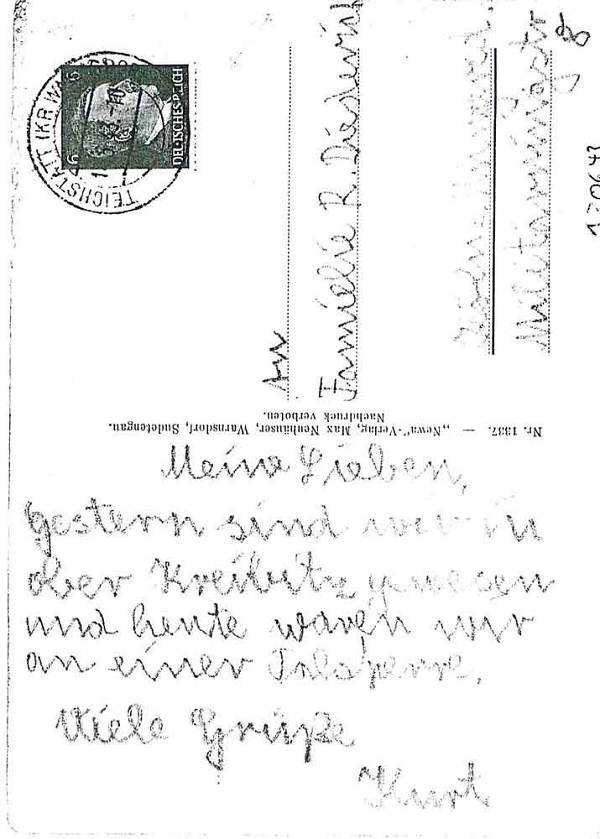 Meine Lieben,
Gestern sind wir in
ober Kreibitz gewesen
und heute waren wir
an einer Talsperre.
Viele Grüße
Kurt
Nr. 1337. — „Newa"-Verlag, Max Neuhäuser, Warnsdorf, Sudetengau.
Nachdruck verboten.
An
Familie R.
TEICHSTATT (KR
6 6
DEUTSCHES REICH